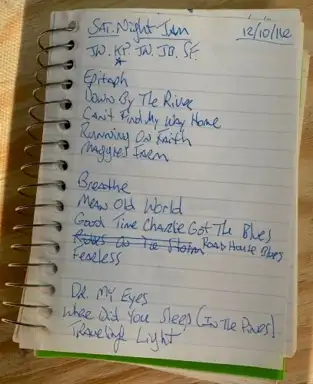 Sat. Night Jam 12/10/16
JW. KP. JW. JB. SF.
Epitaph
Down By The River
Can't Find My Way Home
Running On Faith
Maggies Farm
Breathe
Mean Old World
Good Time Charlie Got The Blues
Riders On The Storm Road House Blues
Fearless
Dr. My Eyes
Where Did You Sleep (In The Pines)
Traveling Light